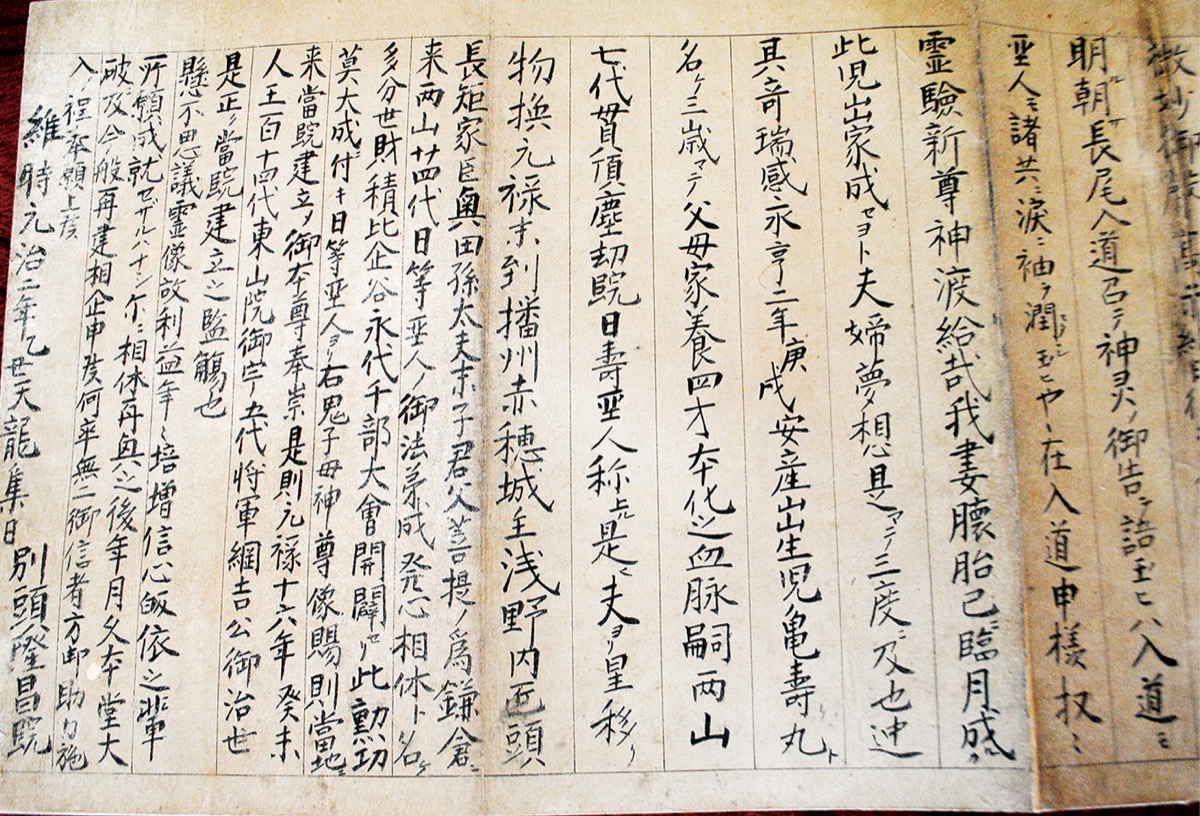 微妙御
明朝長尾入道召テ神灵ノ御告ヲ語玉ヒハ入道ミ
聖人ミ諸共ニ淚ニ袖ヲ潤玉ヒヤヽ在入道申樣扠ミ
靈驗新尊神渡給哉我妻懐胎已ニ臨月成
此児出家成セヨト夫婦夢想具マテ三度ニ及也迚
其奇瑞感永享二年庚戌安産出生児ノ亀壽丸ト
名ケ三歳マテ父母家養四才本化之血脉嗣両山
七代貫頂塵刧院日壽聖人称上ルハ是ニ夫ヨリ星移リ
物换元禄末到播州赤穂城主浅野内匠頭
長矩家臣奥田孫太夫末子君父菩提ノ為鎌倉ニ
来両山廿四代日等聖人ノ御法弟ニ成発心相休ト名ケ
多分世財積比企谷永代千部大會開闢セリ此勲功
莫大成ニ付キ日等聖人ヨリ右鬼子母神尊像賜則當地ニ
来當院建立ノ御本尊奉崇是則元禄十六年癸未
人王百十四代東山院御宇五代将軍綱吉公御治世
是正ノ當院建立之監觴也
懸不思議霊像故利益年ミ培増信心皈依之輩
所願成就セザルハナシ尓ニ相休再興之後年月久本堂大
破及今般再建相企申度何卒無二御信者方御助力施
入程奉願上度
維時元治二年乙丑天龍集日
別頭隆昌院